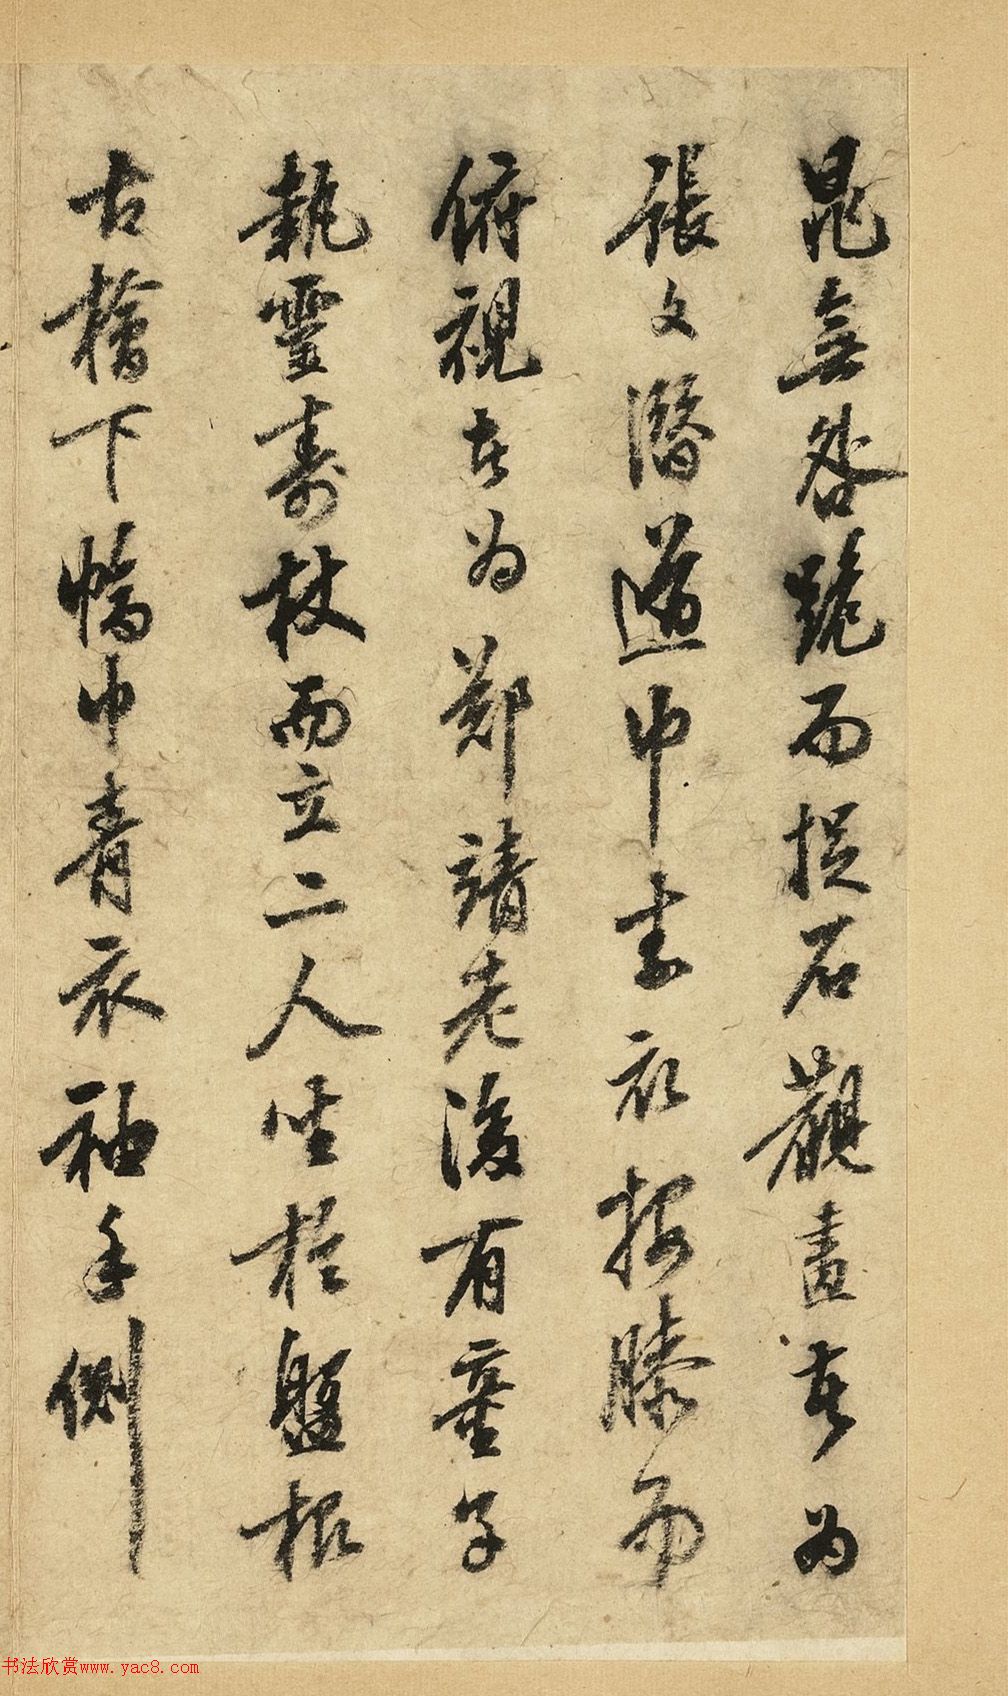 晁無咎跪而捉石觀畫者為
張文潛道巾素衣按膝而
俯視者為鄭靖老後有童子
執靈壽杖而立二人坐於盤根
古檜下幅巾青衣袖手側
书法欣赏www.yac8.com